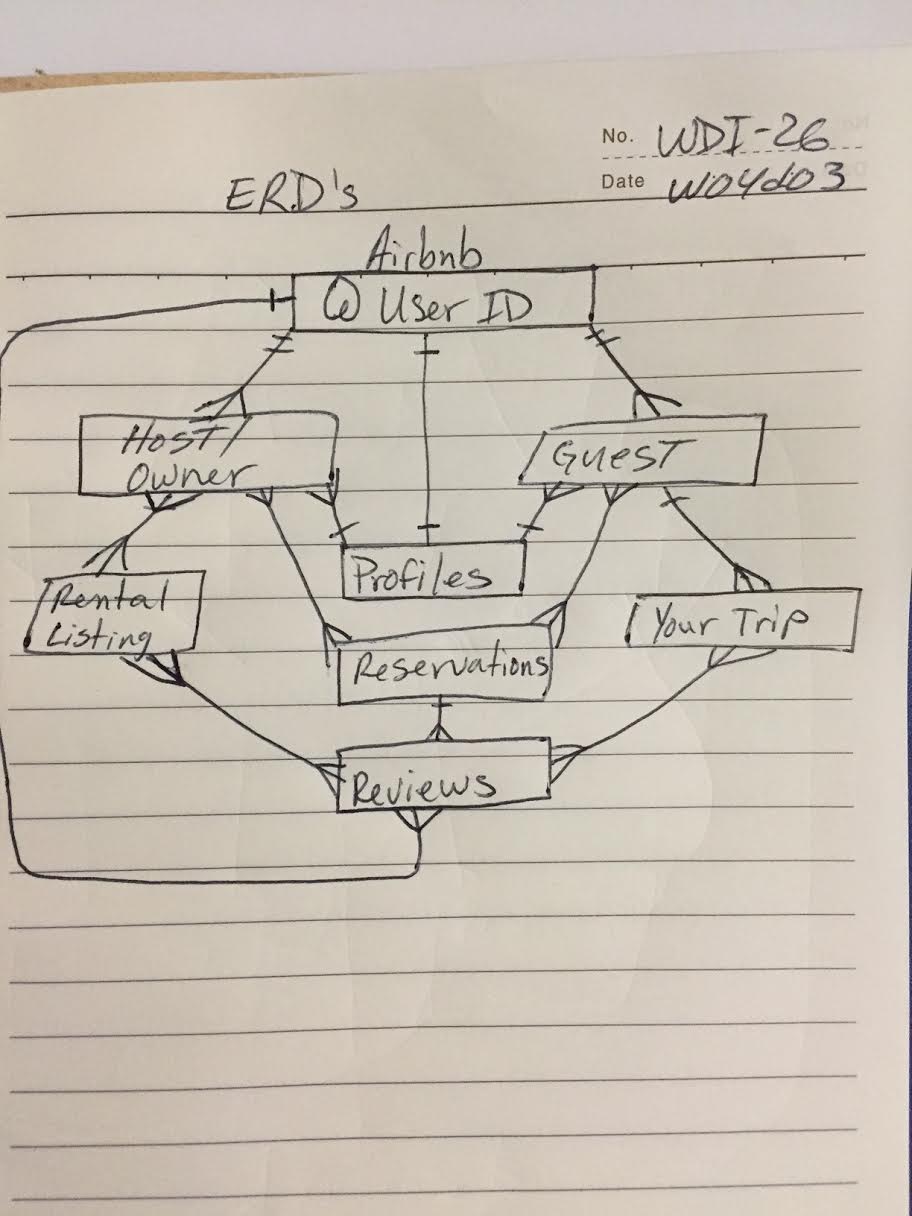 No. WDI-26
Date W04d03
ERD's
Airbnb
User ID
Host/
Owner
Guest
Profiles
Rental
Listing
Your Trip
Reservations
Reviews